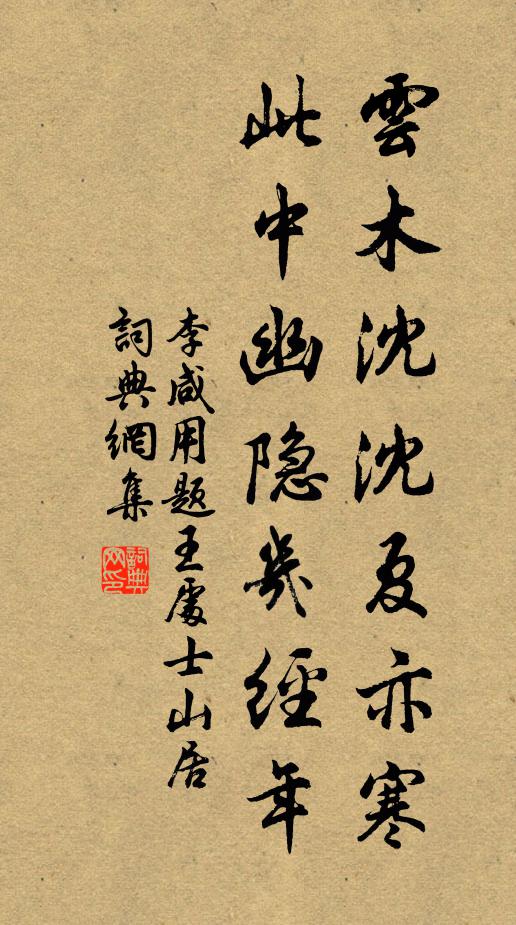 雲木沈沈夏亦寒
此中幽隐幾經年
李咸用題王處士山居
詞典網集
詞典網印